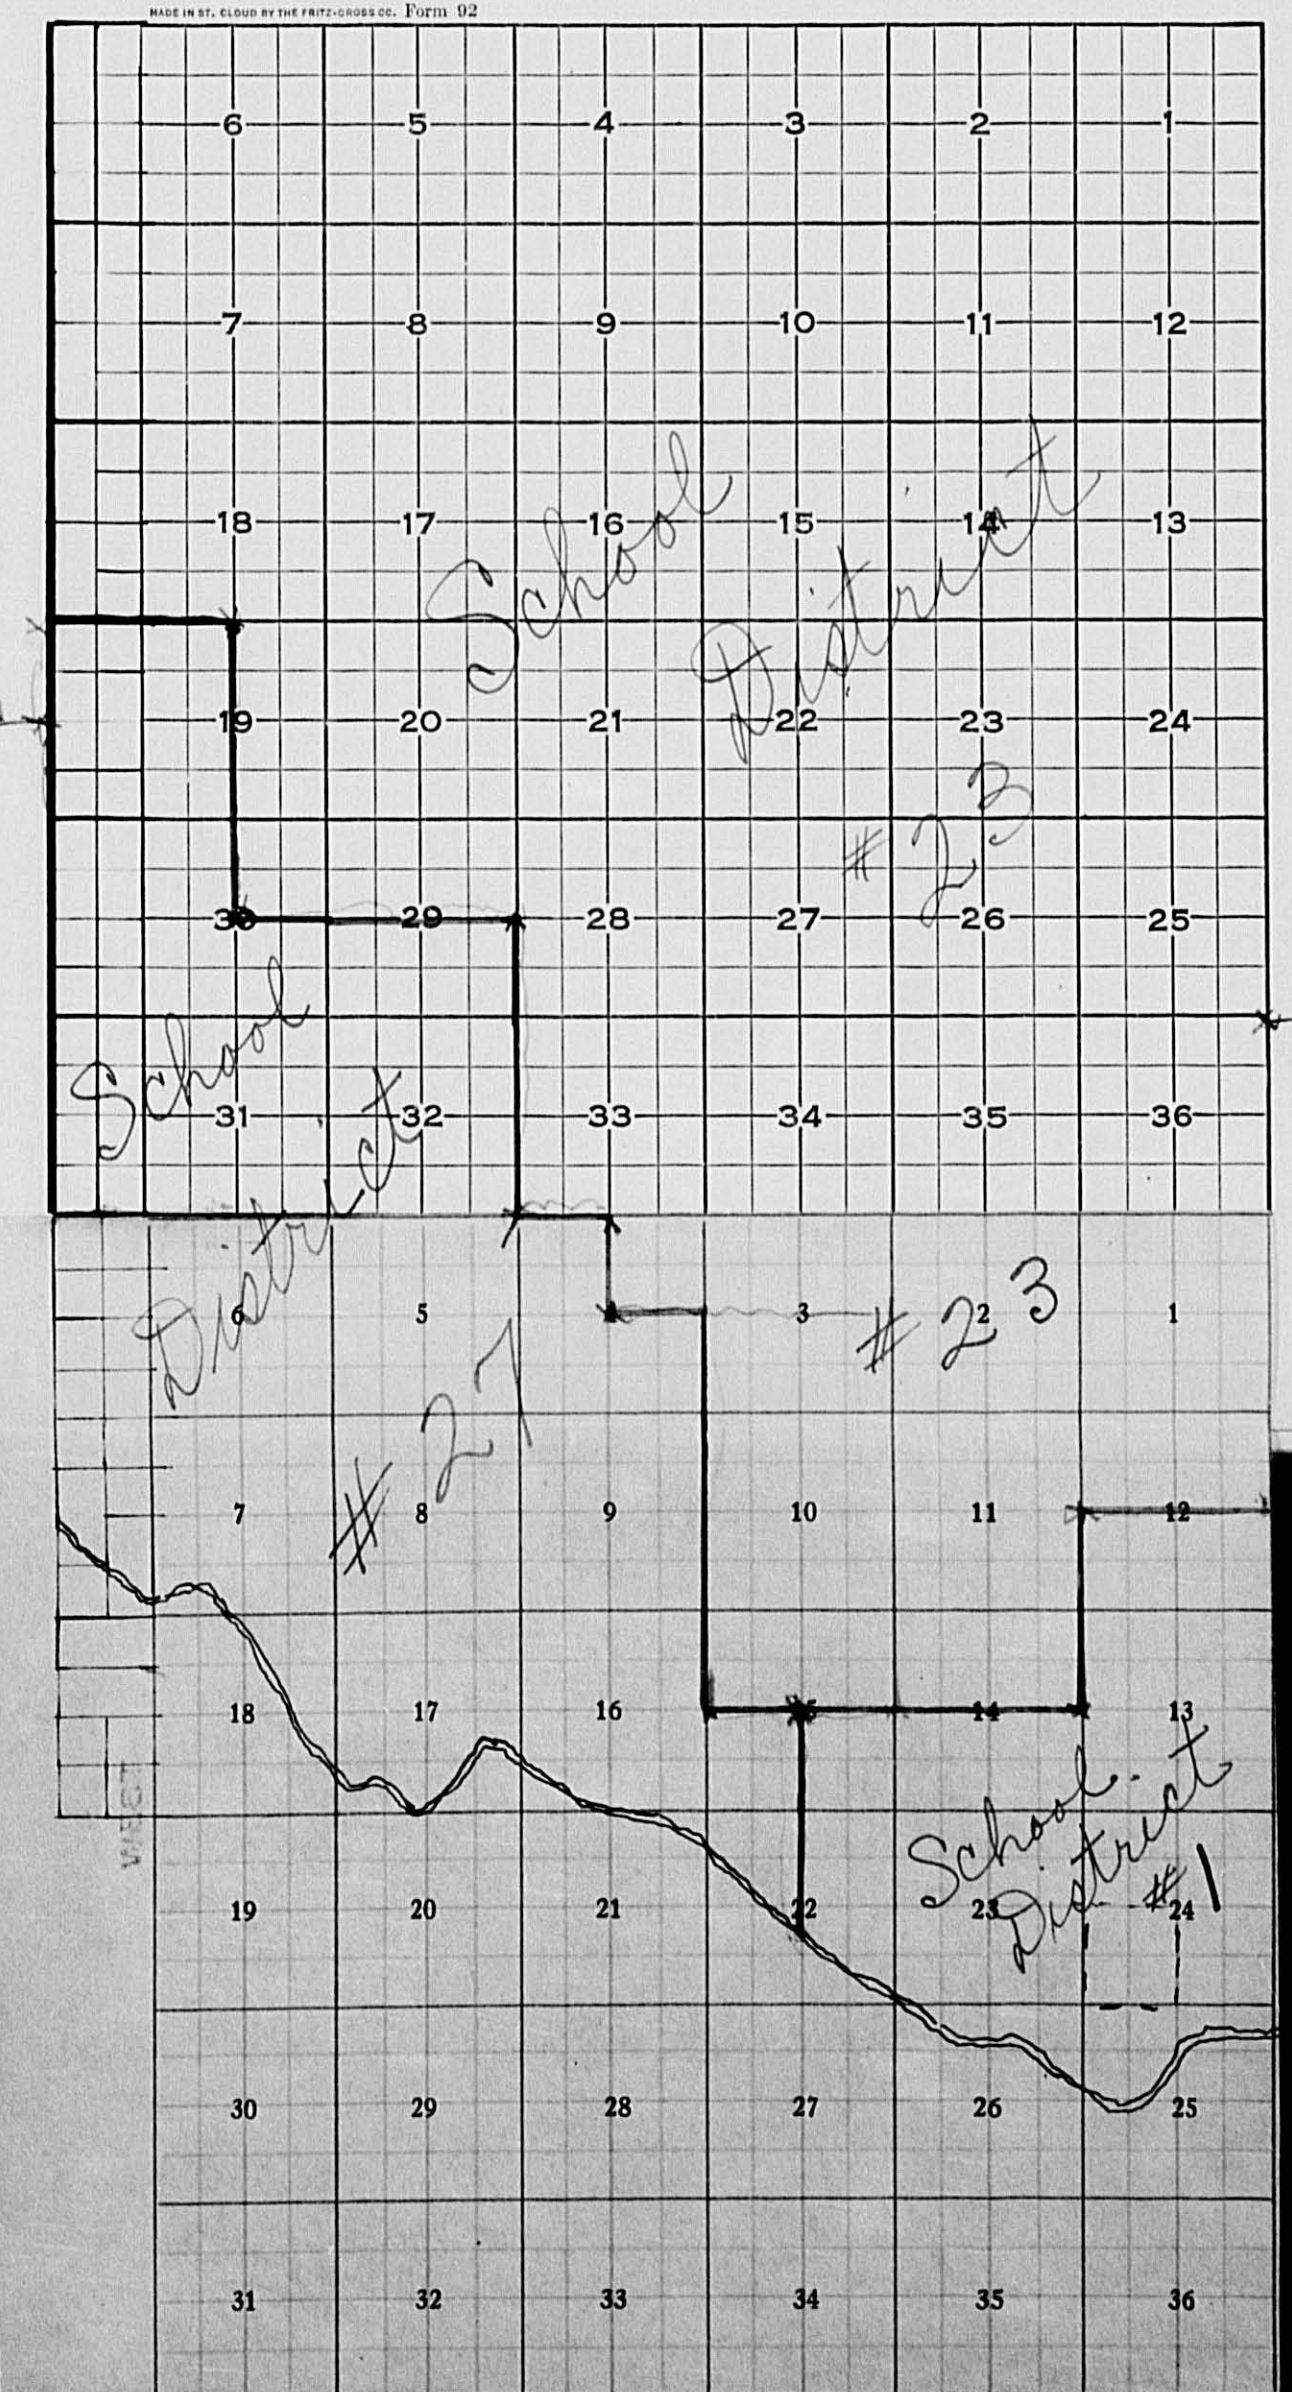 MADE IN ST. CLOUD BY THE FRITZ-CROSS CO. Form 92
6 5 4 3 2 1
7 8 9 10 11 12
18 17 16 15 14 13
School
District
19 20 21 22 23 24
# 23
30 29 28 27 26 25
School
31 32 33 34 35 36
District
6 5 3 2 1
# 23
# 27
7 8 9 10 11 12
18 17 16 15 14 13
WEST
School
District
# 1
19 20 21 22 23 24
30 29 28 27 26 25
31 32 33 34 35 36